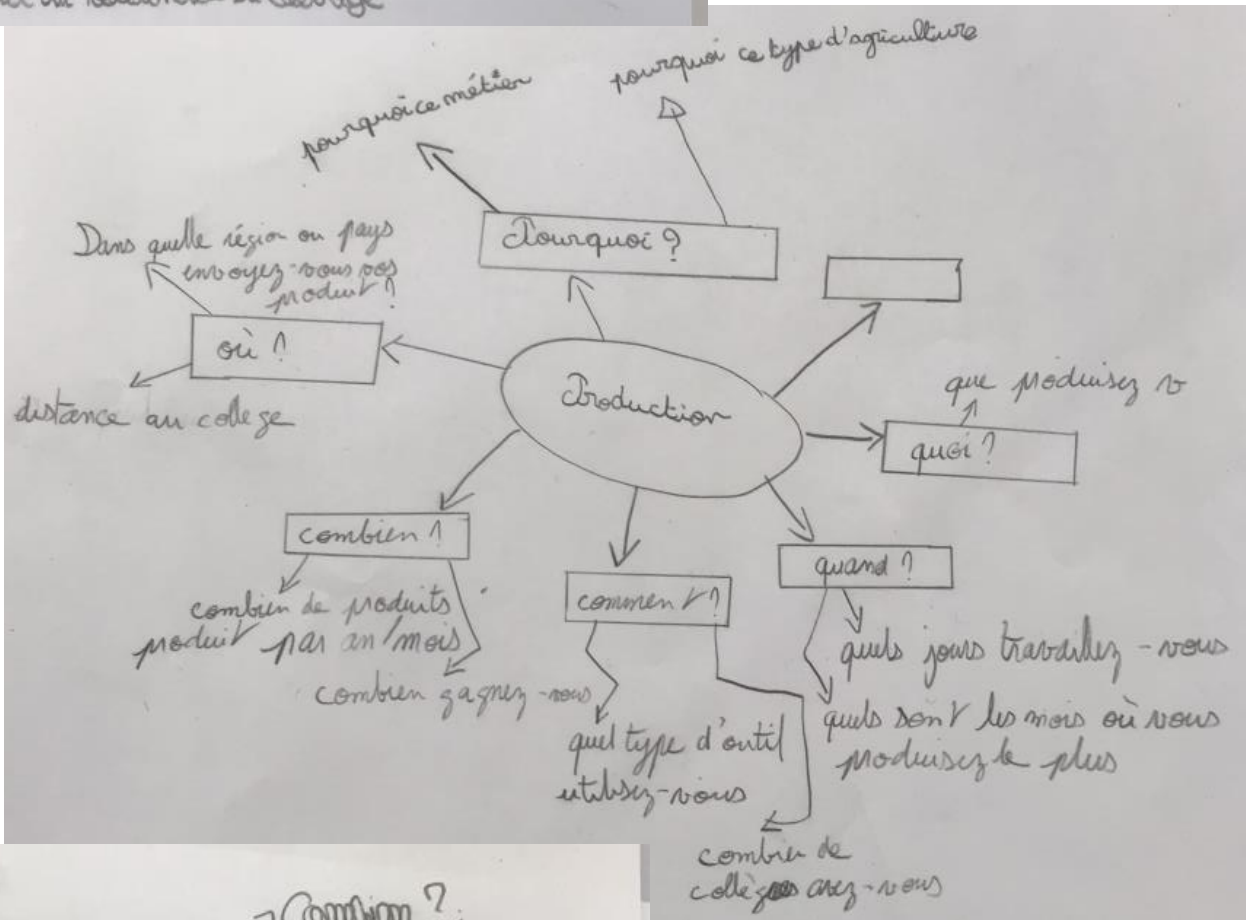 pourquoi ce métier
pourquoi ce type d'agriculture
Pourquoi ?
Dans quelle région ou pays
envoyez-vous vos
produit ?
où ?
distance au college
Production
que produisez v
quoi ?
combien ?
combien de produits
produit par an/mois
combien gagnez-vous
comment ?
quel type d'outil
utilisez-vous
combien de
collègues avez-vous
quand ?
quels jours travaillez-vous
quels sont les mois où vous
produisez le plus
Combien ?